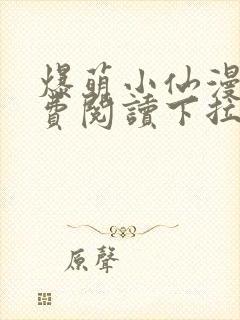 爆萌小仙漫
費閱讀下拉
原聲